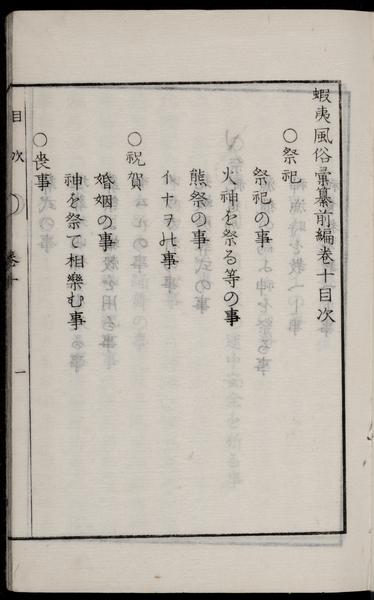 蝦夷風俗彙纂前編巻十目次
○祭祀
祭祀の事
火神を祭る等の事
熊祭の事
イナヲの事
○祝賀
婚姻の事
神を祭て相樂む事
○喪事
目次
巻十
一